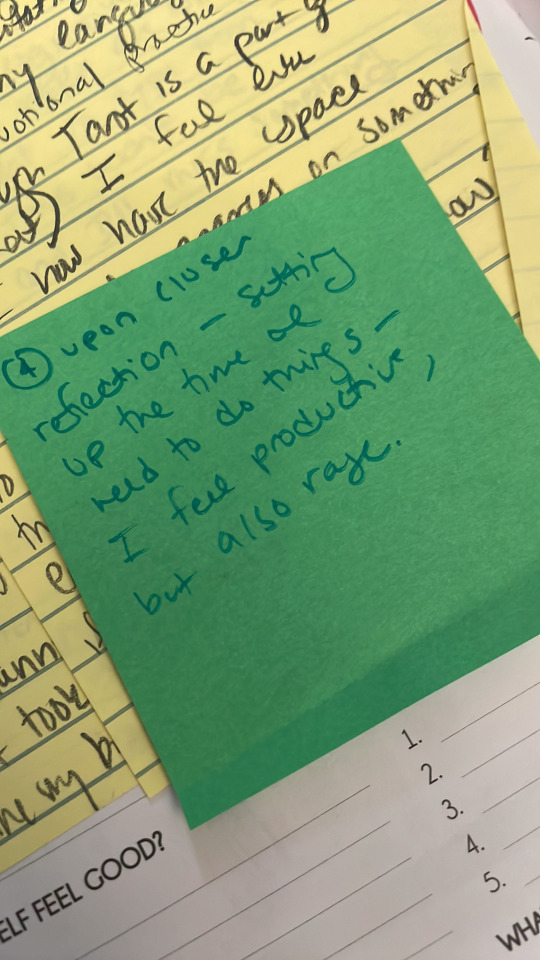 my langu
votional practice
Tarot is a part of
I feel like
I now have the space
on somethin
④ upon closer
reflection - setting
up the time of
need to do things -
I feel productive,
but also rage.
th
e
took
my b
ELF FEEL GOOD?
1.
2.
3.
4.
5.
WHA